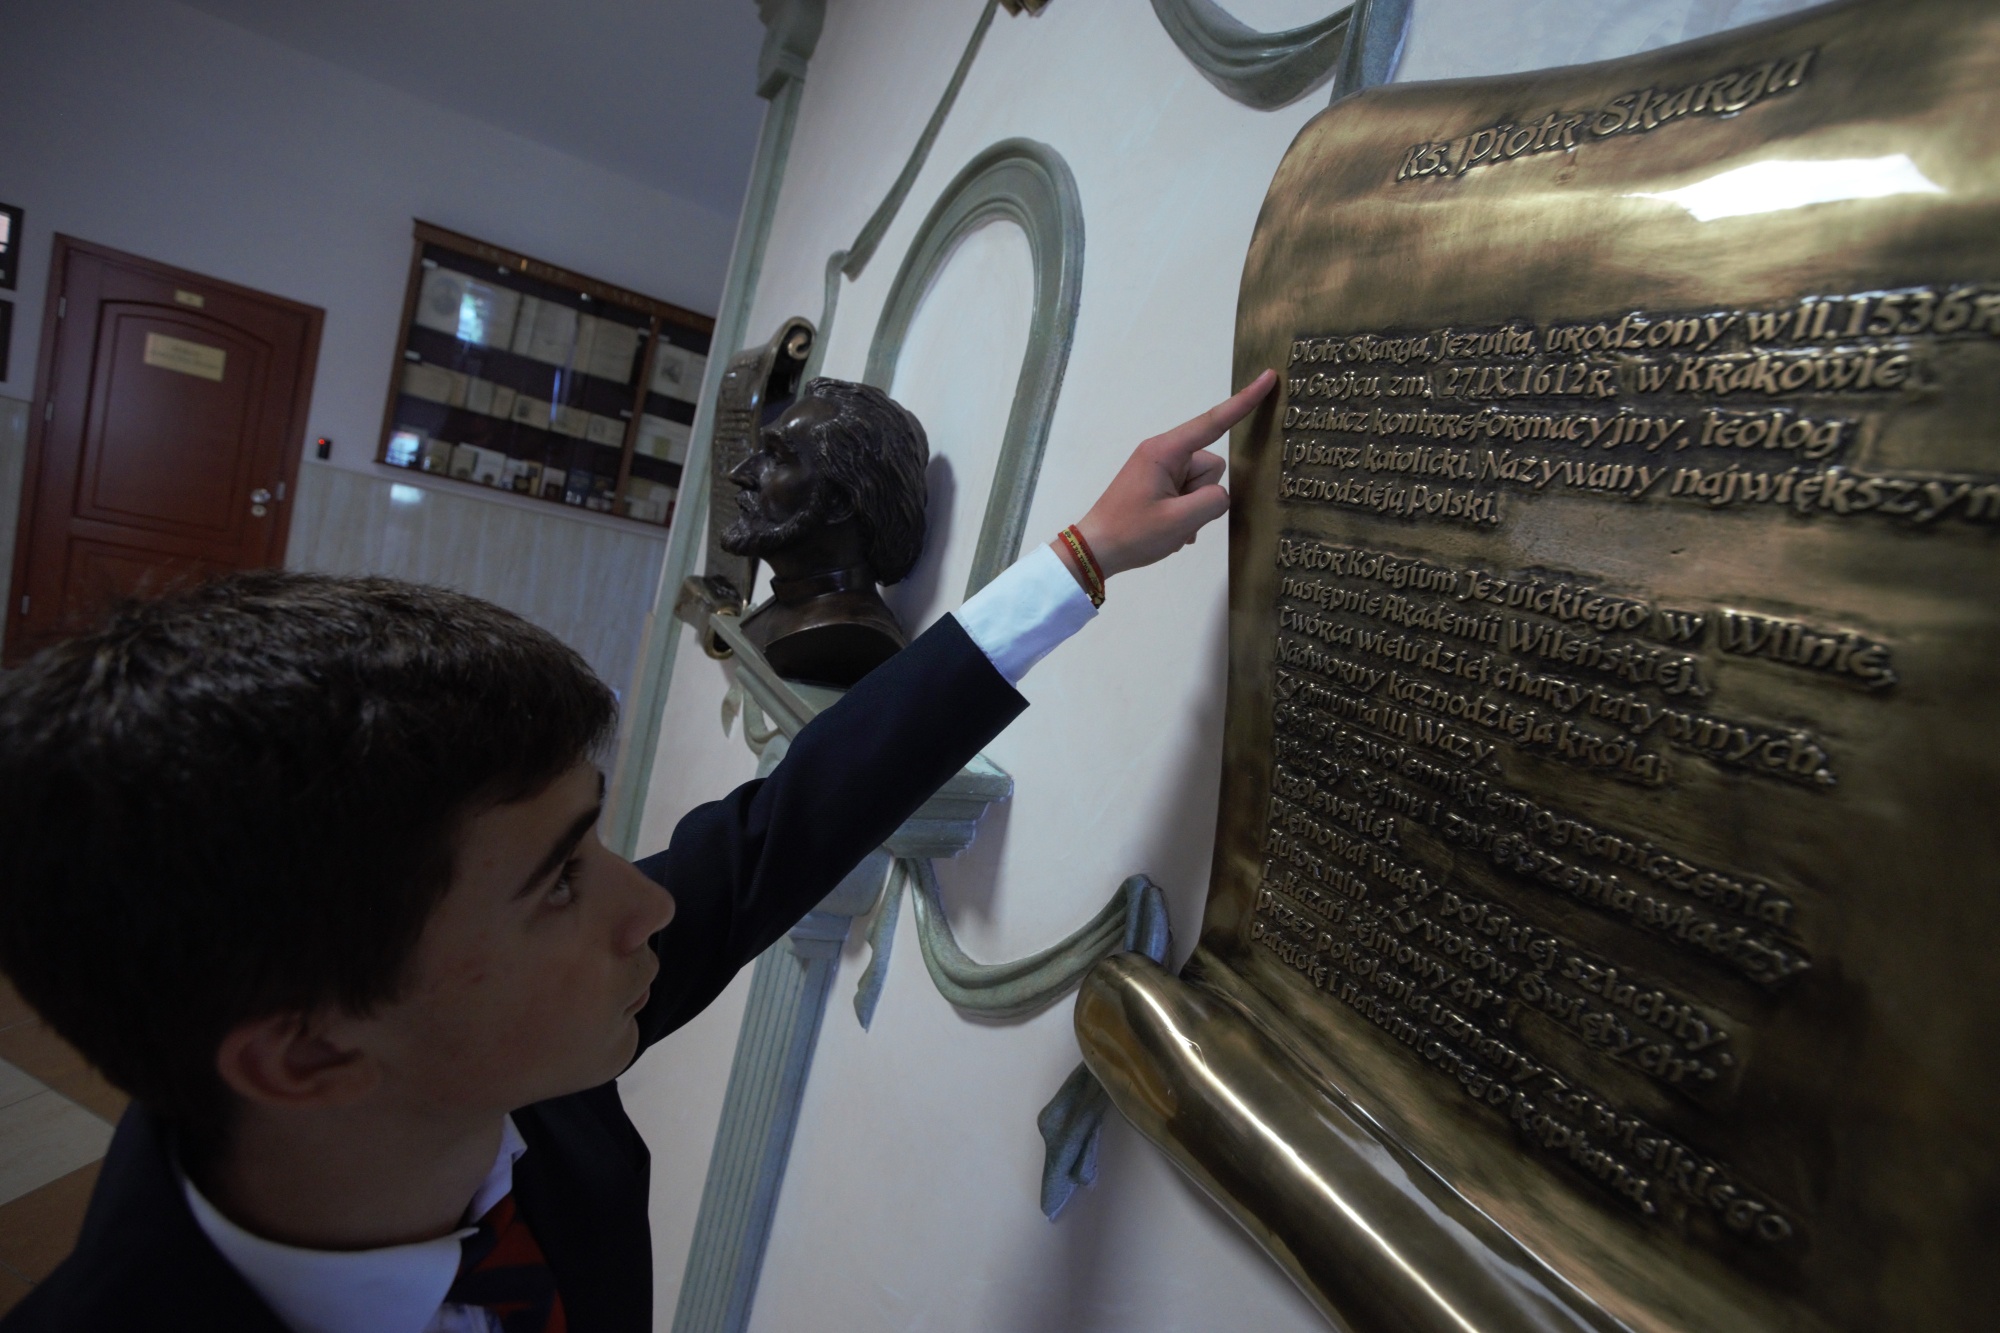 ks. Piotr Skarga
Piotr Skarga, jezuita, urodzony w II.1536r
w Grójcu, zm. 27.IX.1612r. w Krakowie.
Działacz kontrreformacyjny, teolog
i pisarz katolicki. Nazywany największym
kaznodzieją Polski.
Rektor Kolegium Jezuickiego w Wilnie,
następnie Akademii Wileńskiej.
Twórca wielu dzieł charytatywnych.
Nadworny kaznodzieja króla
Zygmunta III Wazy.
Stał się zwolennikiem ograniczenia
władzy Sejmu i zwiększenia władzy
królewskiej.
Piętnował wady polskiej szlachty.
Autor min. "Żywotów Świętych"
i „Kazań Sejmowych".
Przez pokolenia uznany za wielkiego
patriotę i natchnionego kapłana.